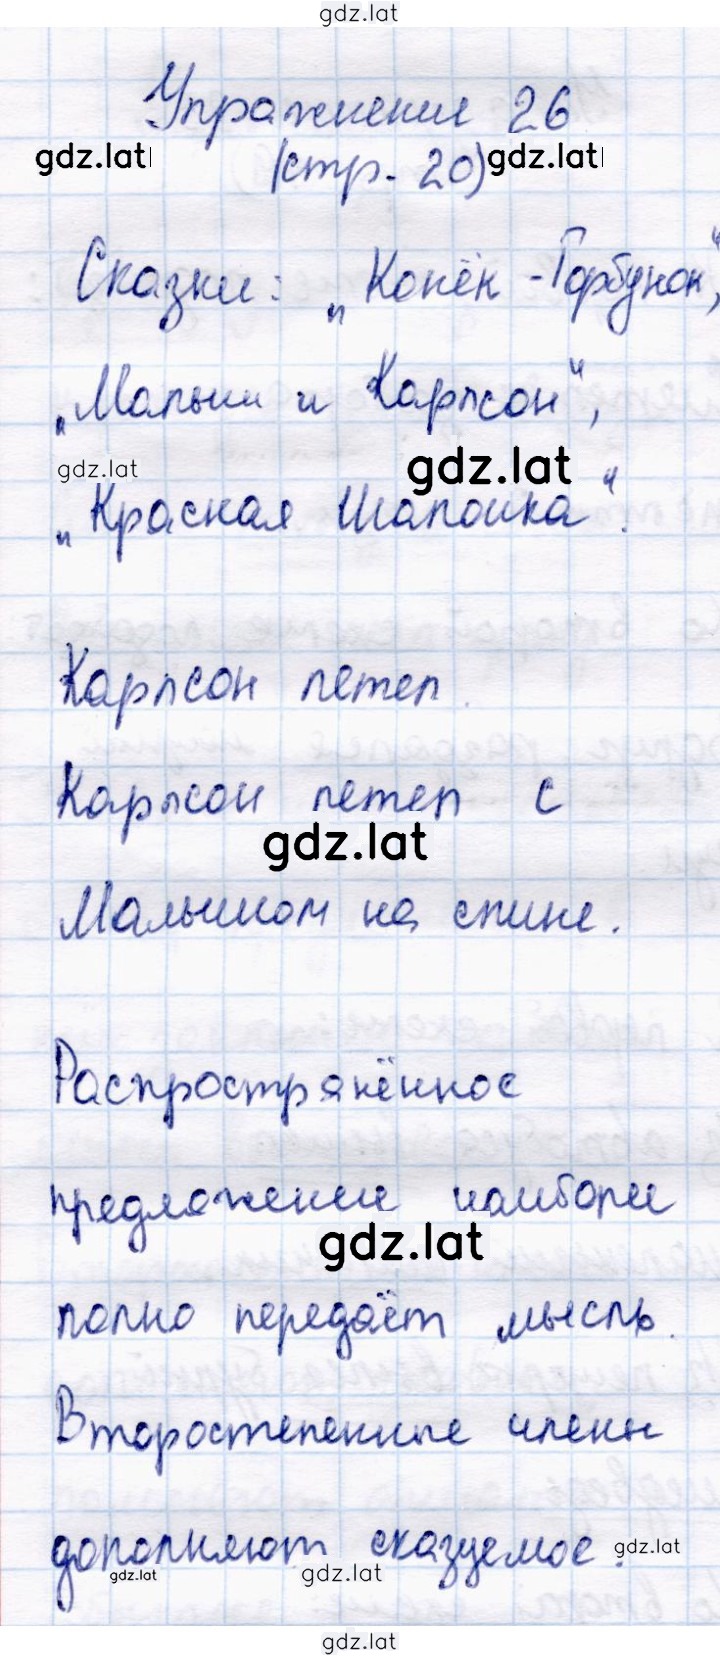 gdz.lat
Упражнение 26
gdz.lat (стр. 20) gdz.lat
Сказки: „Конёк-Горбунок“,
„Малыш и Карлсон“,
gdz.lat gdz.lat
„Красная Шапочка“.
Карлсон летел.
Карлсон летел с
gdz.lat
Малышом на спине.
Распространённое
предложение наиболее
gdz.lat
полно передаёт мысль.
Второстепенные члены
дополняют сказуемое. gdz.lat
gdz.lat gdz.lat
gdz.lat